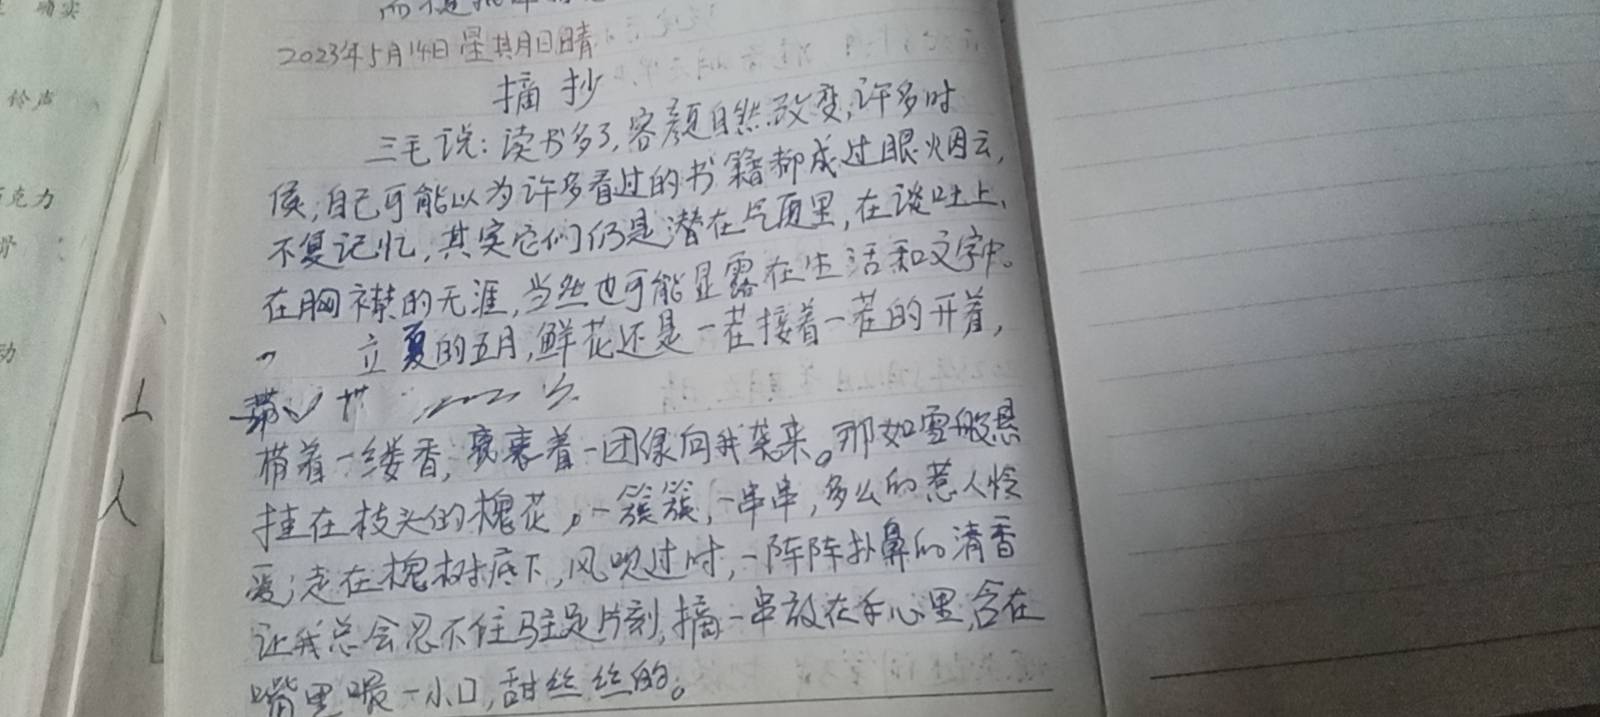 确实
铃声
克力
动
上
人
2023年5月14日星期日晴
摘抄
三毛说:读书多了,容颜自然改变,许多时
候,自己可能以为许多看过的书籍都成过眼烟云,
不复记忆,其实它们仍是潜在气质里,在谈吐上、
在胸襟的无涯,当然也可能显露在生活和文字中。
立夏的五月,鲜花还是一茬接着一茬的开着,
带着一缕香,裹着一团绿向我袭来。那如雪般悬
挂在枝头的槐花,一簇簇,一串串,多么的惹人怜
爱;走在槐树底下,风吹过时,一阵阵扑鼻的清香
让我总会忍不住驻足片刻,摘一串放在手心里,含在
嘴里嘬一小口,甜丝丝的。